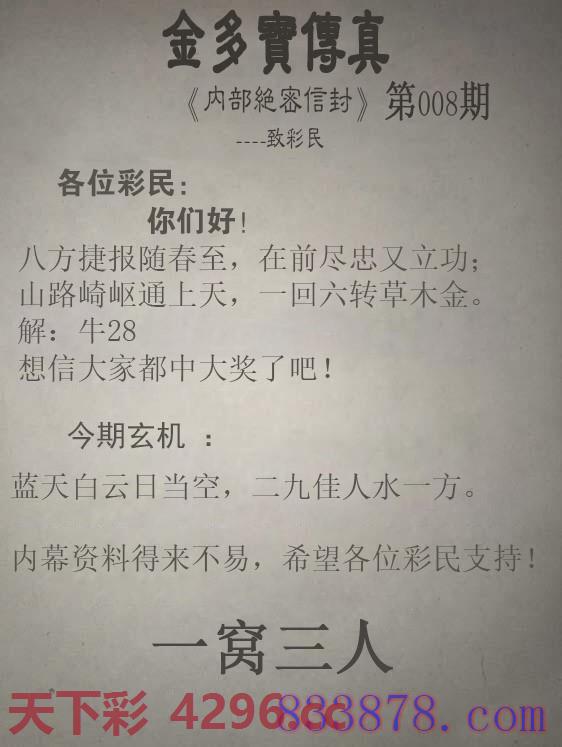 金多寶傳真
《内部絶密信封》第008期
----致彩民
各位彩民:
你们好!
八方捷报随春至，在前尽忠又立功；
山路崎岖通上天，一回六转草木金。
解：牛28
想信大家都中大奖了吧！
今期玄机 ：
蓝天白云日当空，二九佳人水一方。
内幕资料得来不易，希望各位彩民支持！
一窝三人
天下彩 4296.cc
883878.com